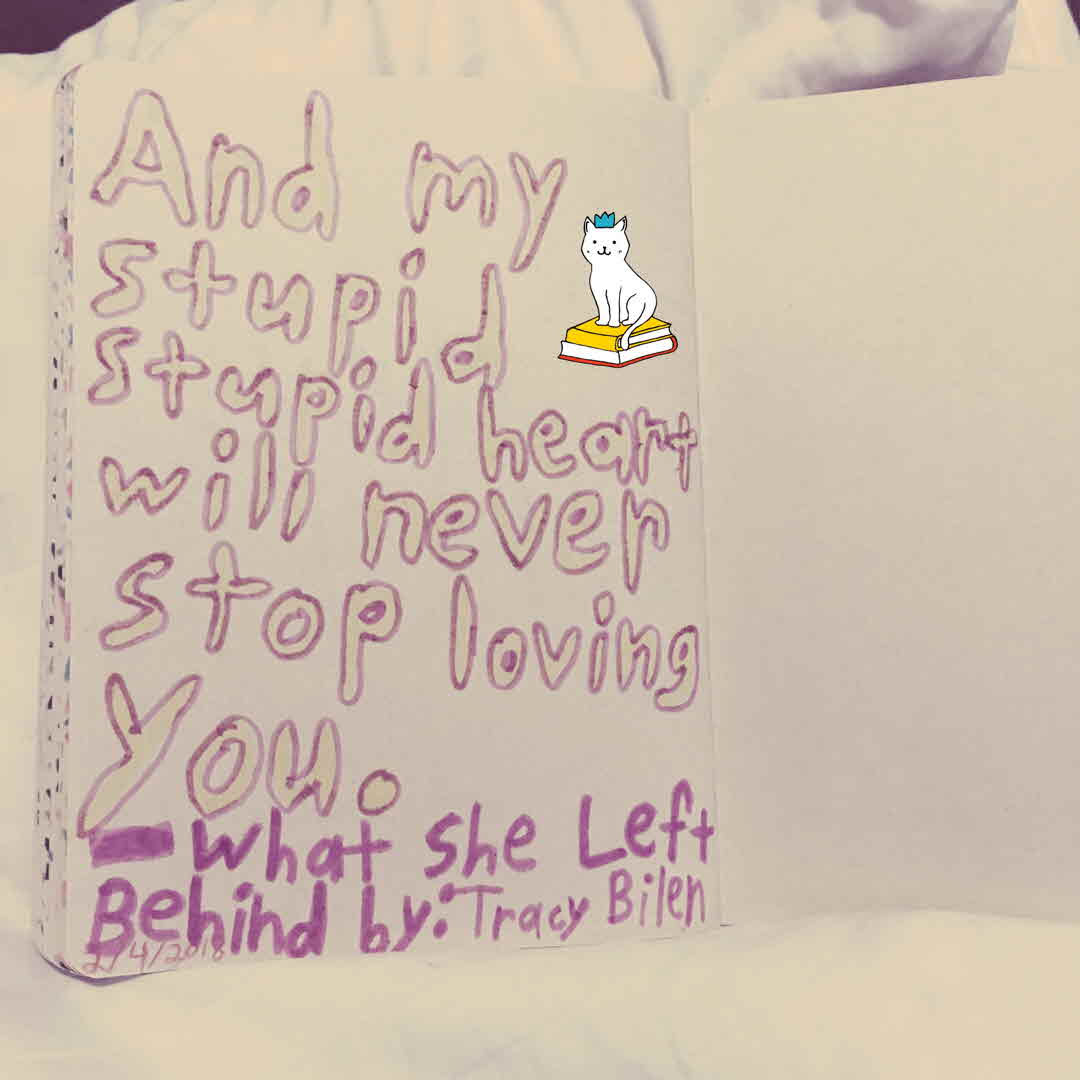 And my
stupid
stupid heart
will never
stop loving
you.
— What she Left
Behind by: Tracy Bilen
2/4/2018